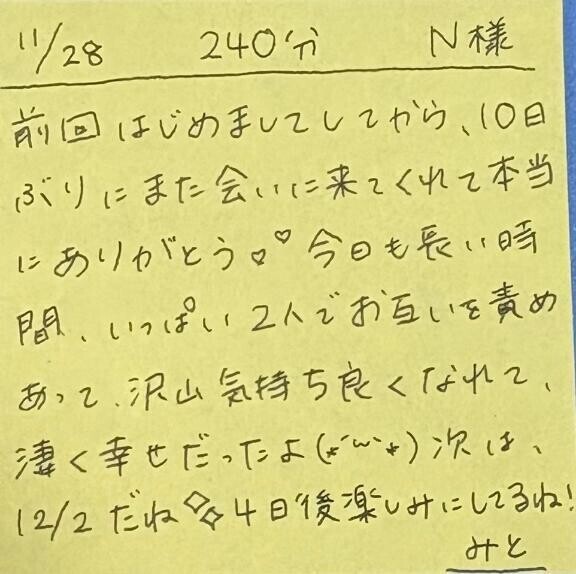 11/28 240分 N様
前回はじめましてしてから、10日
ぶりにまた会いに来てくれて本当
にありがとう♡♡今日も長い時
間、いっぱい2人でお互いを責め
あって、沢山気持ち良くなれて、
凄く幸せだったよ(*´ω`*)次は、
12/2だね◇◇4日後楽しみにしてるね!
みと